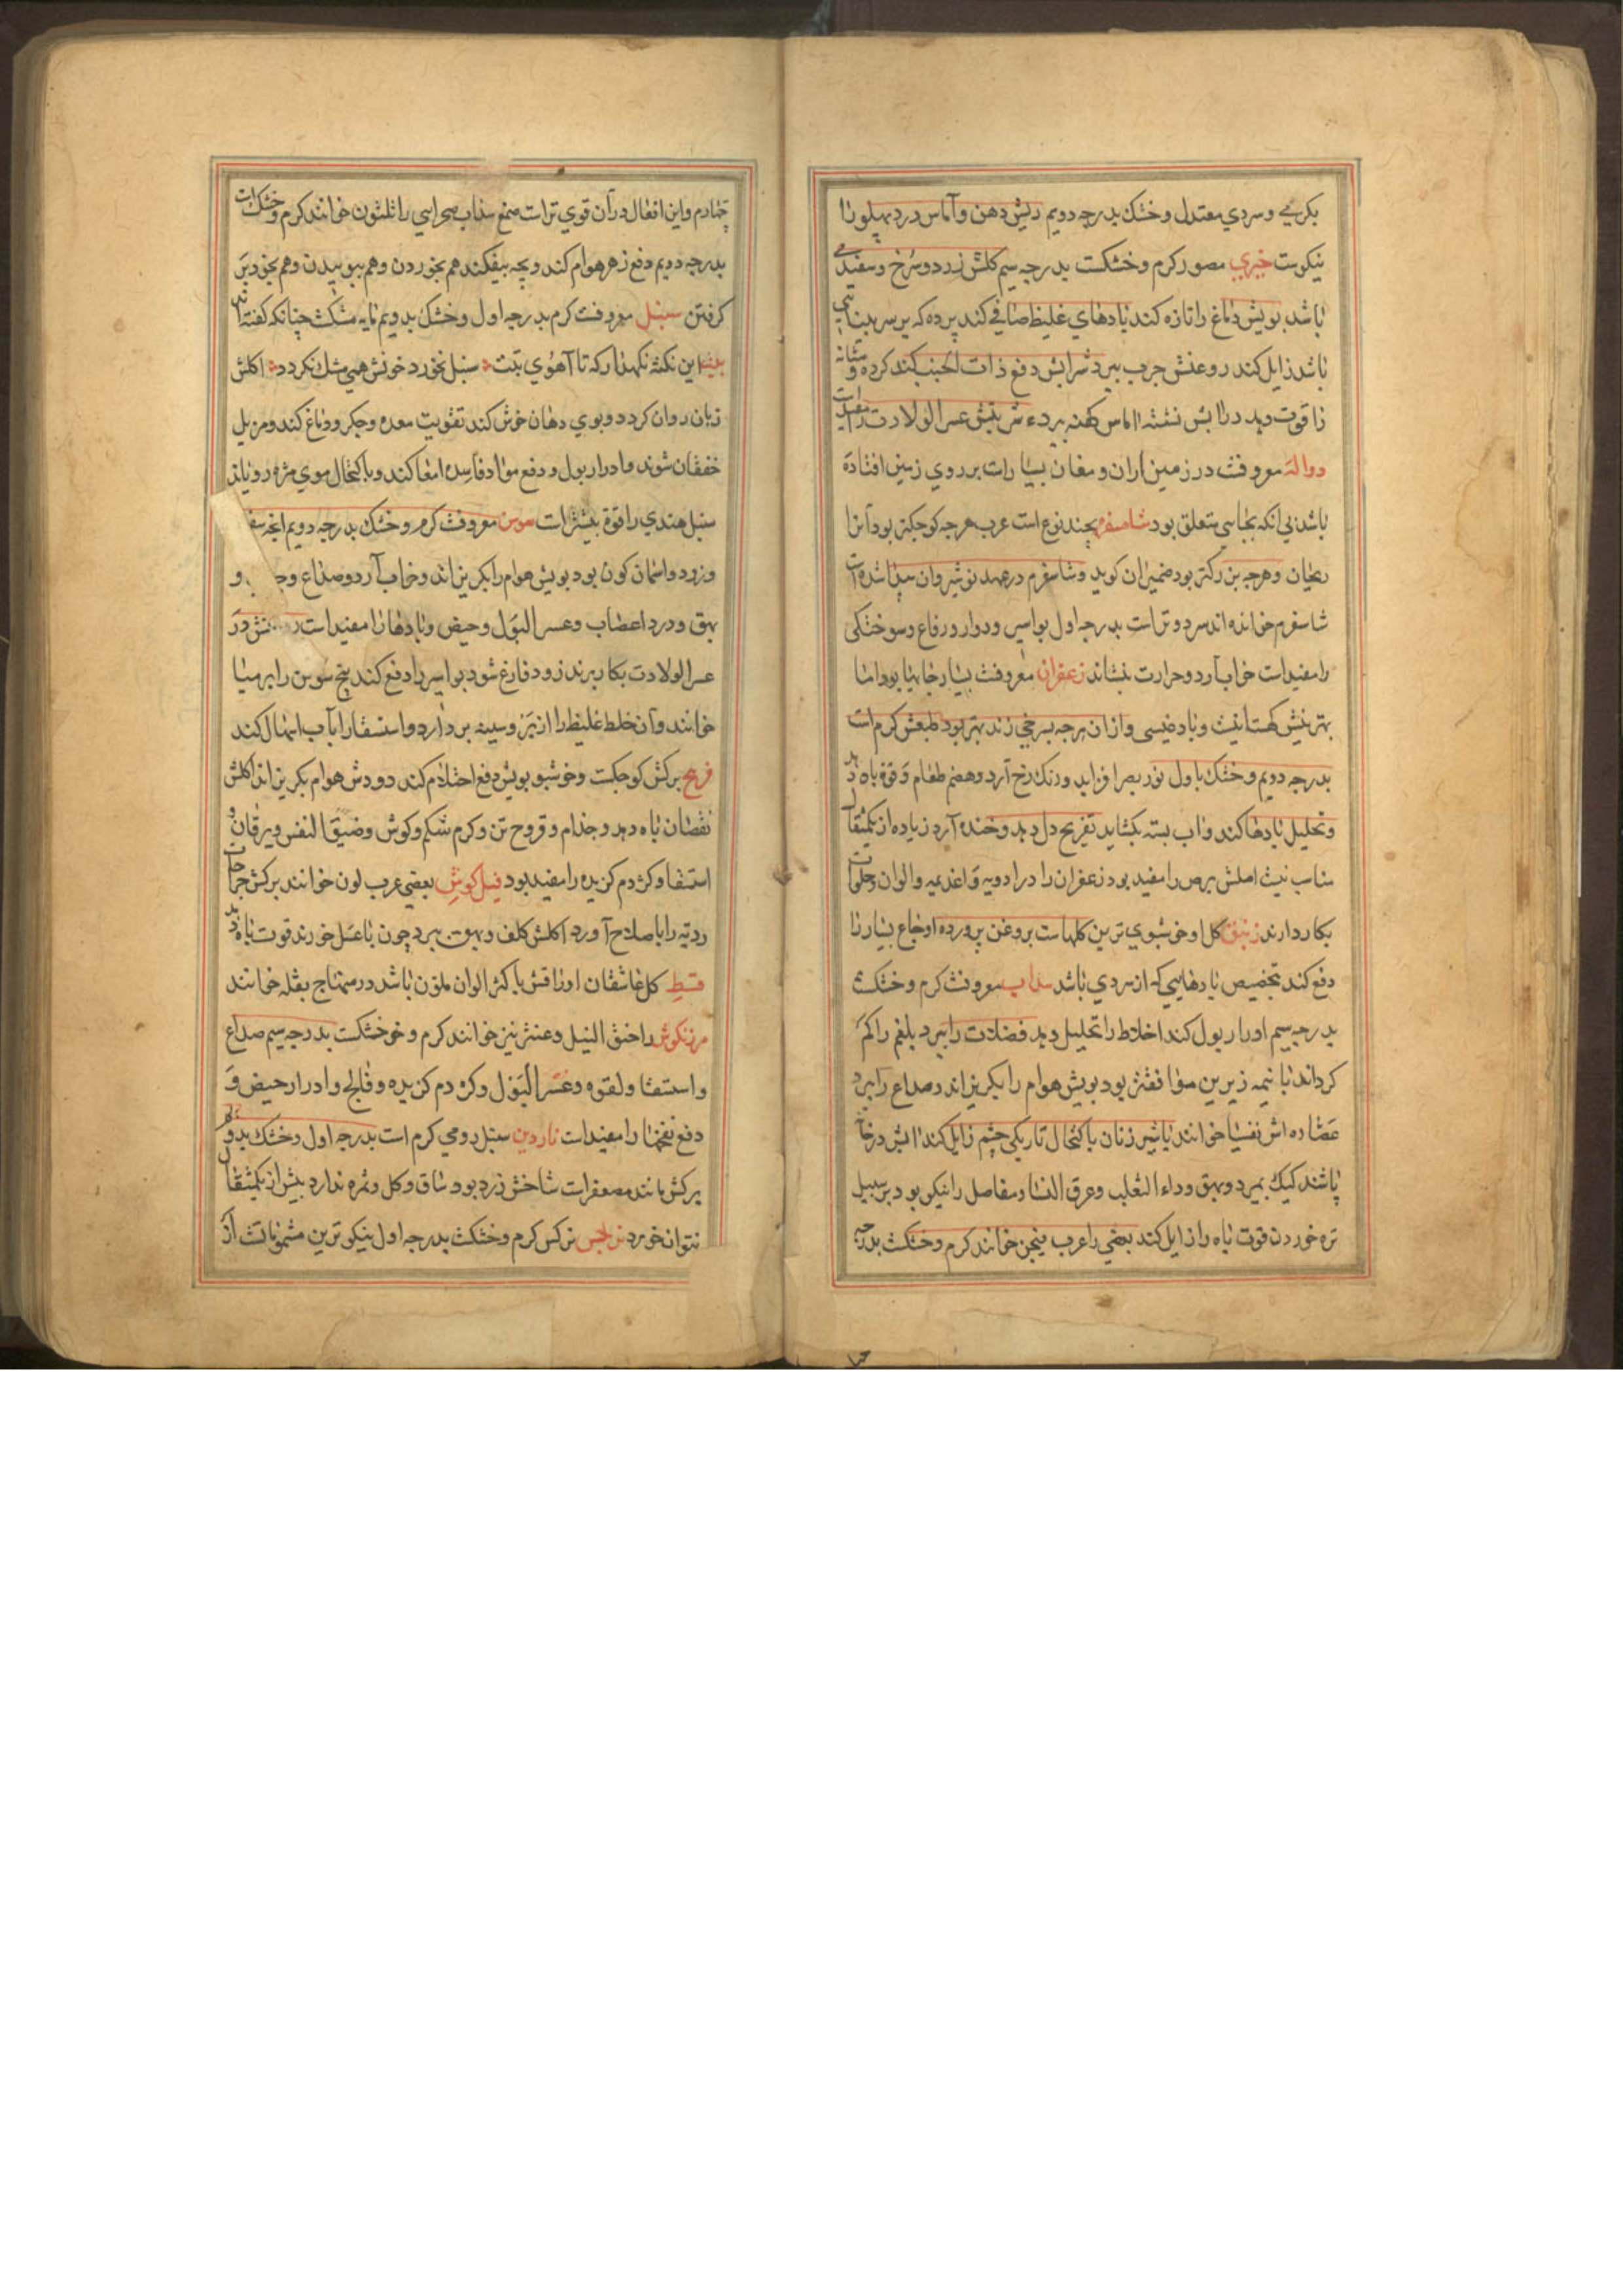 بکرمی و سردی معتدل و خشک بدرجه دویم ریش دهن و آماس درد پهلو را
نیکوست خیری مصور کرم و خشکست بدرجه سیم کلش زرد و سرخ و سفید می
باشد بویش دماغ را تازه کند بادهای غلیظ صافی کند پرده که بر سر بینایی
باشد زایل کند روغنش جرب ببرد شرابش دفع ذات الجنب کند کرده و مثانه
را قوت دهد در آبش نشستن آماس کهنه ببرد عسر الولادت را مفیداست
دواله معروفست در زمین اران و مغان بسیارات بر روی زمین افتاده
باشد بی انکه بجایی متعلق بود شاهسفرم بچند نوع است عرب هرچه کوچکتر بود آنرا
ریحان و هرچه بزرکتر بود ضمیران کوید و شاسفرم در عهد نوشیروان پیدا شده است
شاسفرم خوانده اند سرد و تراست بدرجه اول بواسیر و دوار و رفاع و سوختکی
را مفیداست خواب آرد و حرارت بنشاند زعفران معروفست بسیار جایها بود اما
بهترینش قهستانیست و بادغیسی و از ان هرچه بسرخی زند بهتر بود طبعش کرم است
بدرجه دویم و خشک باول نور بصر افزاید و رنک رخ آرد و هضم طعام و قوة باه دهد
و تحلیل بادها کند و آب بسته بکشاید تفریح دل دهد و خنده آرد زیاده از یکمثقال
مناسب نیست اصلش برص را مفید بود زعفران را در ادویه و اغذیه و الوان و حلوات
بکار دارند زنبق کل او خوشبوی ترین کلهاست بروغن پرورده اوجاع بسیار را
دفع کند تخصیص بادهایی که از سردی باشد سداب معروفست کرم و خشکست
بدرجه سیم ادرار بول کند اخلاط را تحلیل دهد فضلات را ببرد بلغم را کم
کرداند با نیمه زیرین موافقتر بود بویش هوام را بکریزاند صداع را ببرد
عصاره اش نفسیا خوانند با شیر زنان باکتحال تاریکی چشم زایل کند آبش در خانه
پاشند کیک بمیرد و بهق و داء الثعلب و عرق النسا و مفاصل را نیکو بود بر سبیل
تره خوردن قوت باه را زایل کند بعضی را عرب فیجن خوانند کرم و خشکست بدرجه
چهارم و این افعال در آن قوی تراست صمغ سداب صحرایی را ثلثون خوانند کرم و خشک است
بدرجه دویم دفع زهر هوام کند و بچه بیفکند هم بخوردن و هم ببوییدن و هم بخود بر
کرفتن سنبل معروفست کرم بدرجه اول و خشک بدویم مایه مشکست چنانکه کفته اند
بیت این نکته نکهدار که تا آهوی تبت سنبل نخورد خونش همی مشک نکردد اکلش
زبان روان کردد و بوی دهان خوش کند تقویت معده و جکر و دماغ کند و مزیل
خفقان شوند و ادرار بول و دفع مواد فاسده امعا کند و باکتحال موی مژه رویاند
سنبل هندی را قوة بیشتراست سوسن معروفست کرم و خشک بدرجه دویم انچه سفید
و زرد و اسمان کون بود بویش هوام را بکریزاند و خواب آرد و صداع و
بهق و درد اعصاب و عسر البول و حیض و بادها را مفیداست در
عسر الولادت بکار برند زود فارغ شود بواسیر را دفع کند بیخ سوسن را ایرسیا
خوانند و آن خلط غلیظ را از و سینه بردارد و استسقا را بآب اسهال کند
فریح برکش کوچکست و خوشبو بویش دفع احتلام کند دودش هوام بکریزاند اکلش
نقصان باه دهد و جذام و قروح تن و کرم شکم و کوش و ضیق النفس و یرقان و
استسقا و کژدم کزیده را مفید بود فیل کوش بعضی عرب لون خوانند برکش جراحات
ردیه را باصلاح آورد اکلش کلف و بهق ببرد چون با عسل خورند قوت باه دهد
قسط کل عاشقان اوراقش باکثر الوان ملون باشد در منهاج بقله خوانند
مرزنکوش را حبق الفیل و عنتر نیز خوانند کرم و خوخشکست بدرجه سیم صداع
و استسقا و لقوه و عسر البول و کژدم کزیده و فالج و ادرار حیض و
دفع نفخها را مفیداست ناردین سنبل رومی کرم است بدرجه اول و خشک بدوم
برکش مانند معصفراست شاخش زرد بود ساق و کل و ثمره ندارد بیش از یکمثقال
نتوان خورد نرجس نرکس کرم و خشکست بدرجه اول نیکوترین مشموماتست از